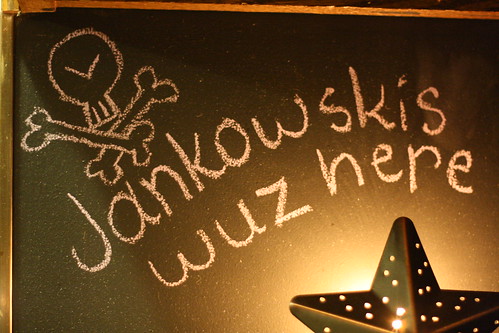 Jankowskis
wuz here